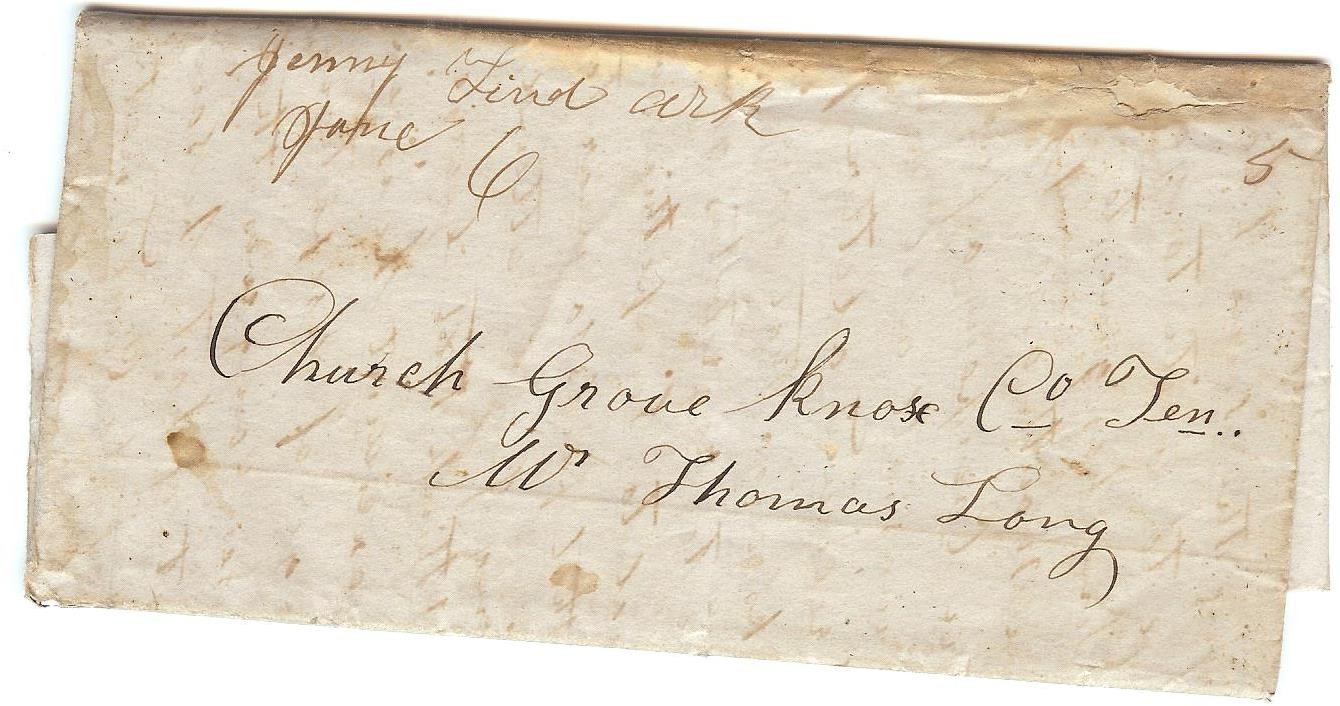 Jenny Lind ark
June 6
5
Church Grove Knox Co Ten..
Mr Thomas Long